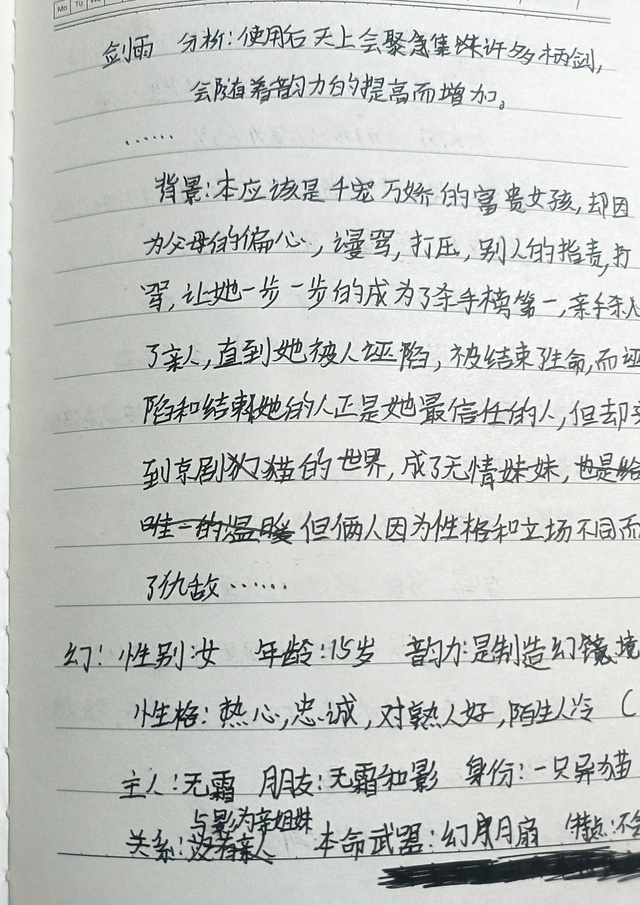 Mo Tu We
剑雨 分析:使用后天上会聚集许多柄剑,
会随着韵力的提高而增加。
......
背景:本应该是千宠万娇的富贵女孩,却因
为父母的偏心,谩骂,打压,别人的指责,打
骂,让她一步一步的成为了杀手榜第一,亲手杀
了亲人,直到她被人诬陷,被结束生命,而诬
陷和结束她的人正是她最信任的人,但却
到京剧猫的世界,成了无情妹妹,也是给
唯一的温暖但俩人因为性格和立场不同而
了仇敌......
幻:性别:女 年龄:15岁 韵力:是制造幻镜境
性格:热心,忠诚,对熟人好,陌生人冷(
主人:无霜 朋友:无霜和影 身份:一只异猫
与影为亲姐妹
关系:没有亲人 本命武器:幻月扇 特点:不